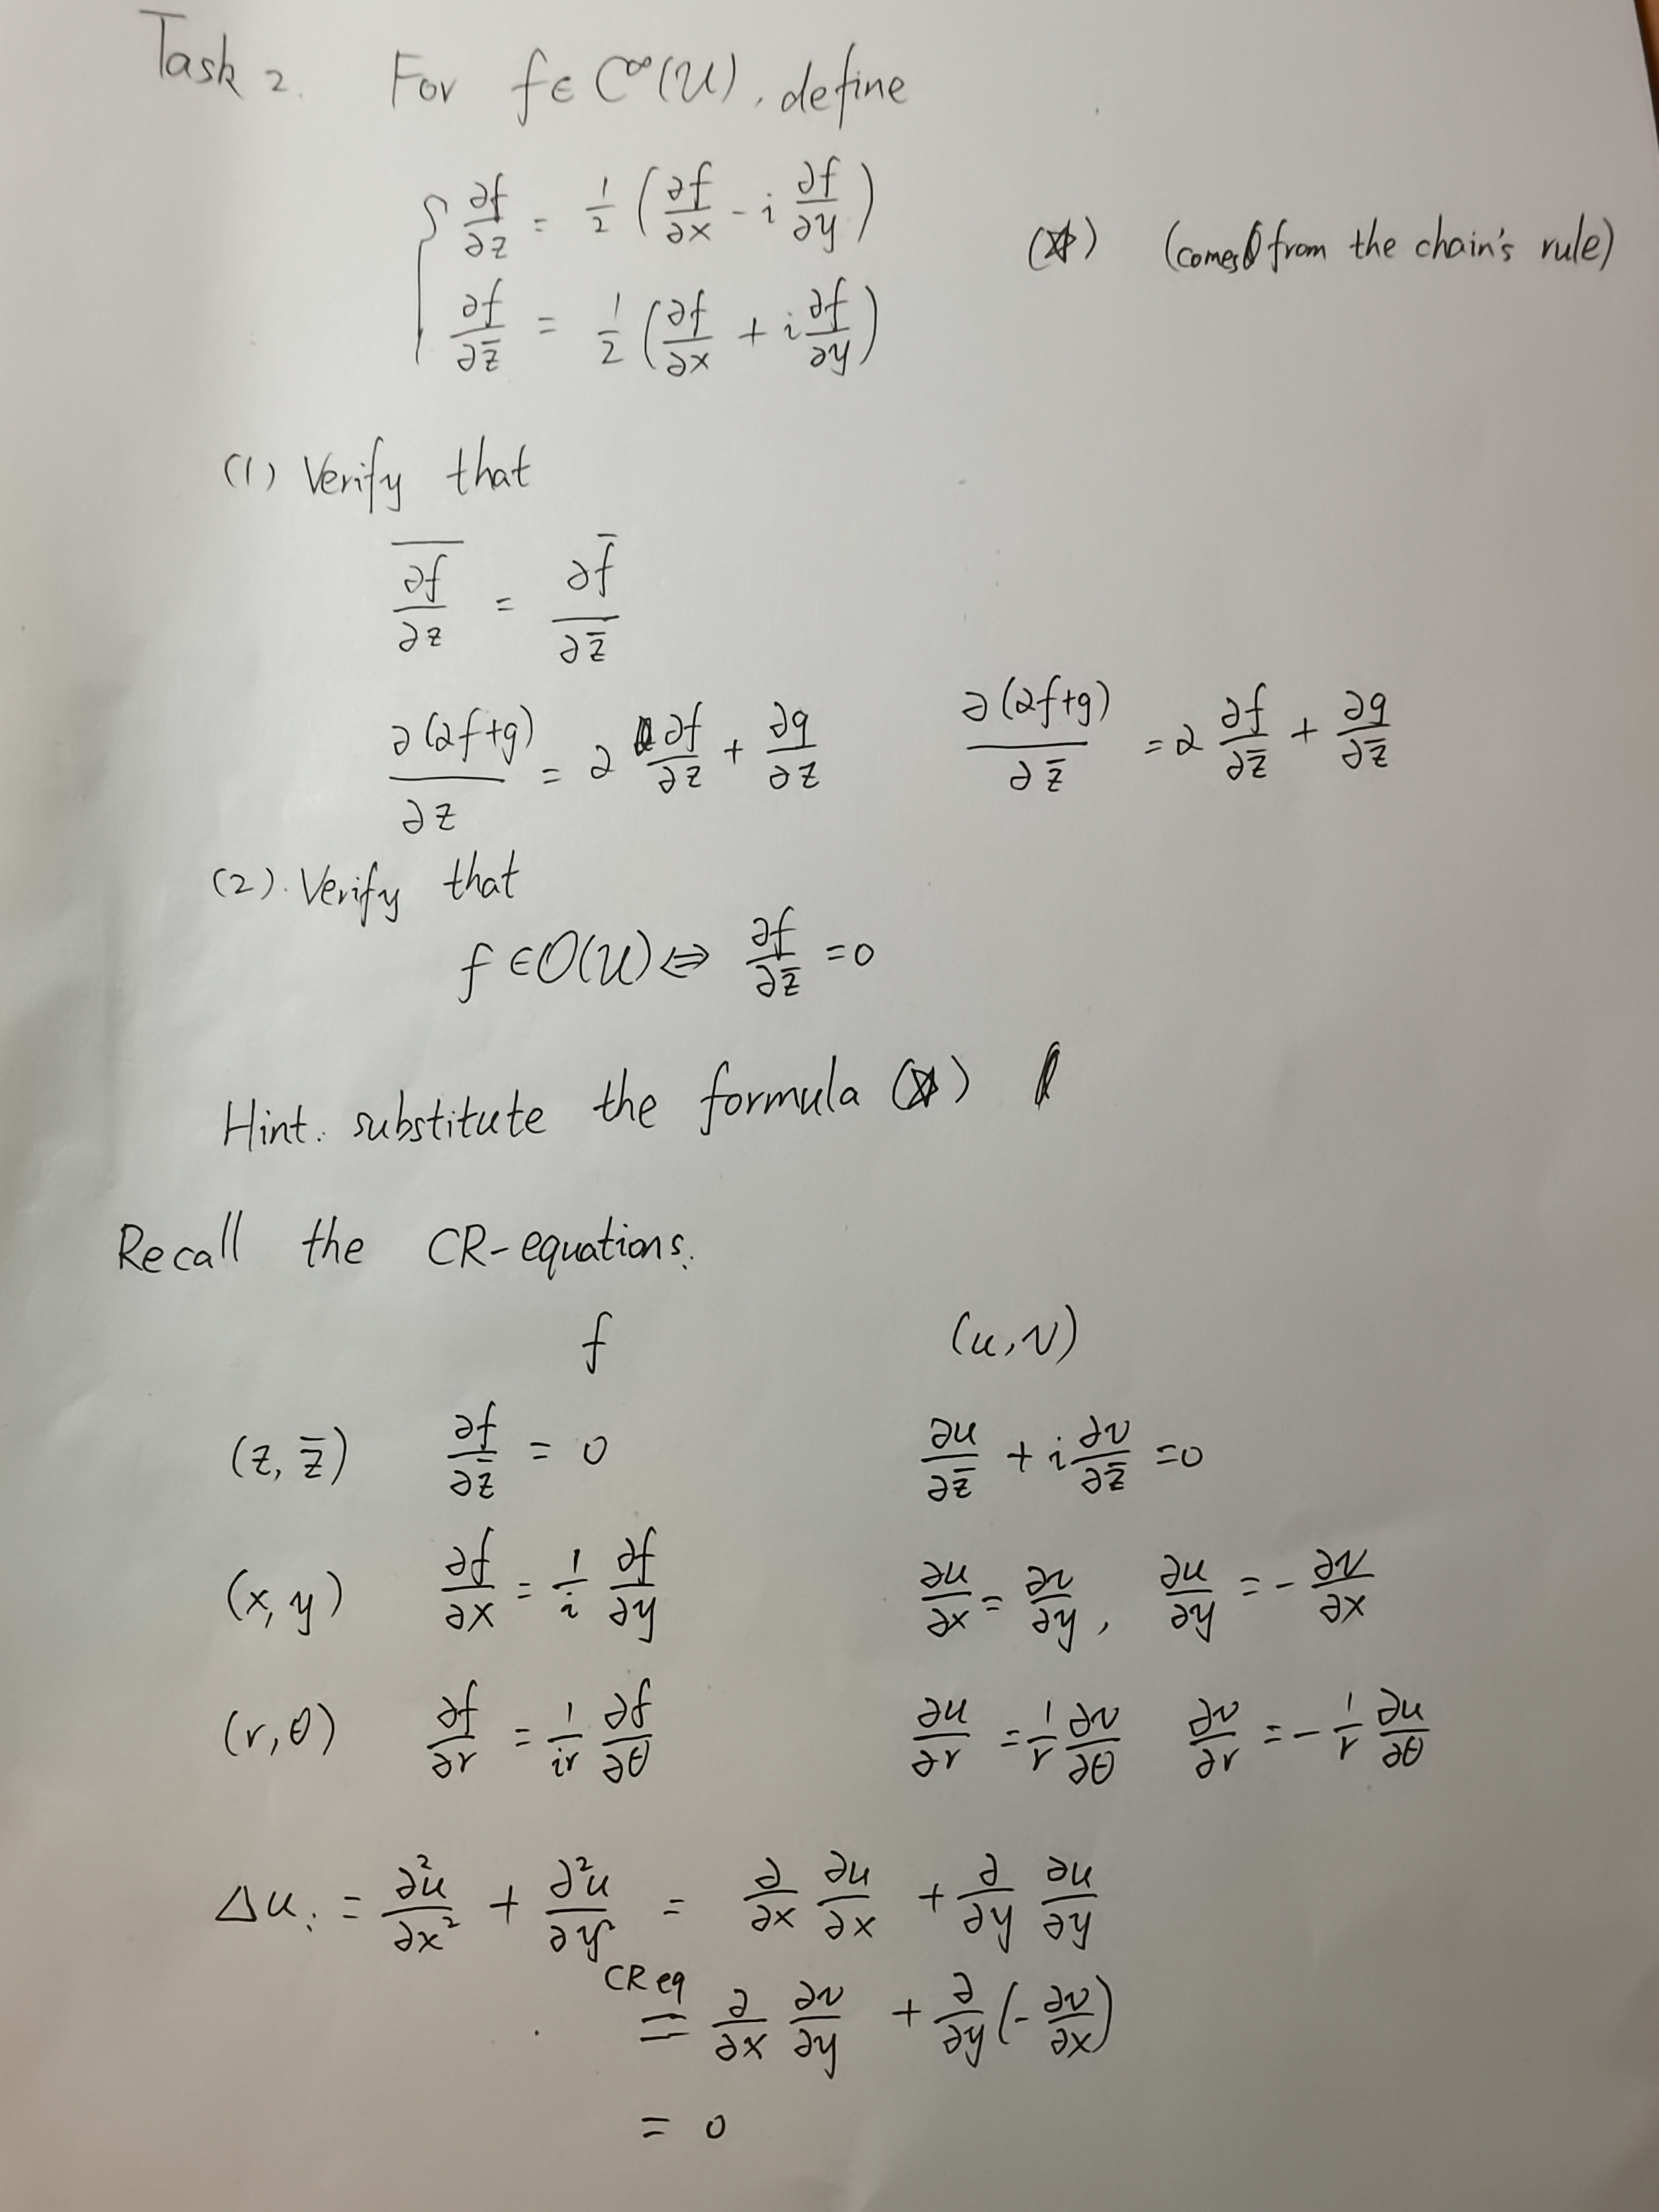 Task 2. For f ∈ C^∞(U), define
{ ∂f/∂z = 1/2 (∂f/∂x - i ∂f/∂y)
(*) (comes from the chain's rule)
∂f/∂z̄ = 1/2 (∂f/∂x + i ∂f/∂y)
(1) Verify that
\overline{∂f/∂z} = ∂f̄/∂z̄
∂(αf+g)/∂z = α ∂f/∂z + ∂g/∂z ∂(αf+g)/∂z̄ = α ∂f/∂z̄ + ∂g/∂z̄
(2). Verify that
f ∈ O(U) ⇔ ∂f/∂z̄ = 0
Hint: substitute the formula (*)
Recall the CR-equations:
f (u,v)
(z, z̄) ∂f/∂z̄ = 0 ∂u/∂z̄ + i ∂v/∂z̄ = 0
(x, y) ∂f/∂x = 1/i ∂f/∂y ∂u/∂x = ∂v/∂y, ∂u/∂y = - ∂v/∂x
(r, θ) ∂f/∂r = 1/ir ∂f/∂θ ∂u/∂r = 1/r ∂v/∂θ ∂v/∂r = - 1/r ∂u/∂θ
Δu := ∂²u/∂x² + ∂²u/∂y² = ∂/∂x ∂u/∂x + ∂/∂y ∂u/∂y
CR eq
= ∂/∂x ∂v/∂y + ∂/∂y (- ∂v/∂x)
= 0